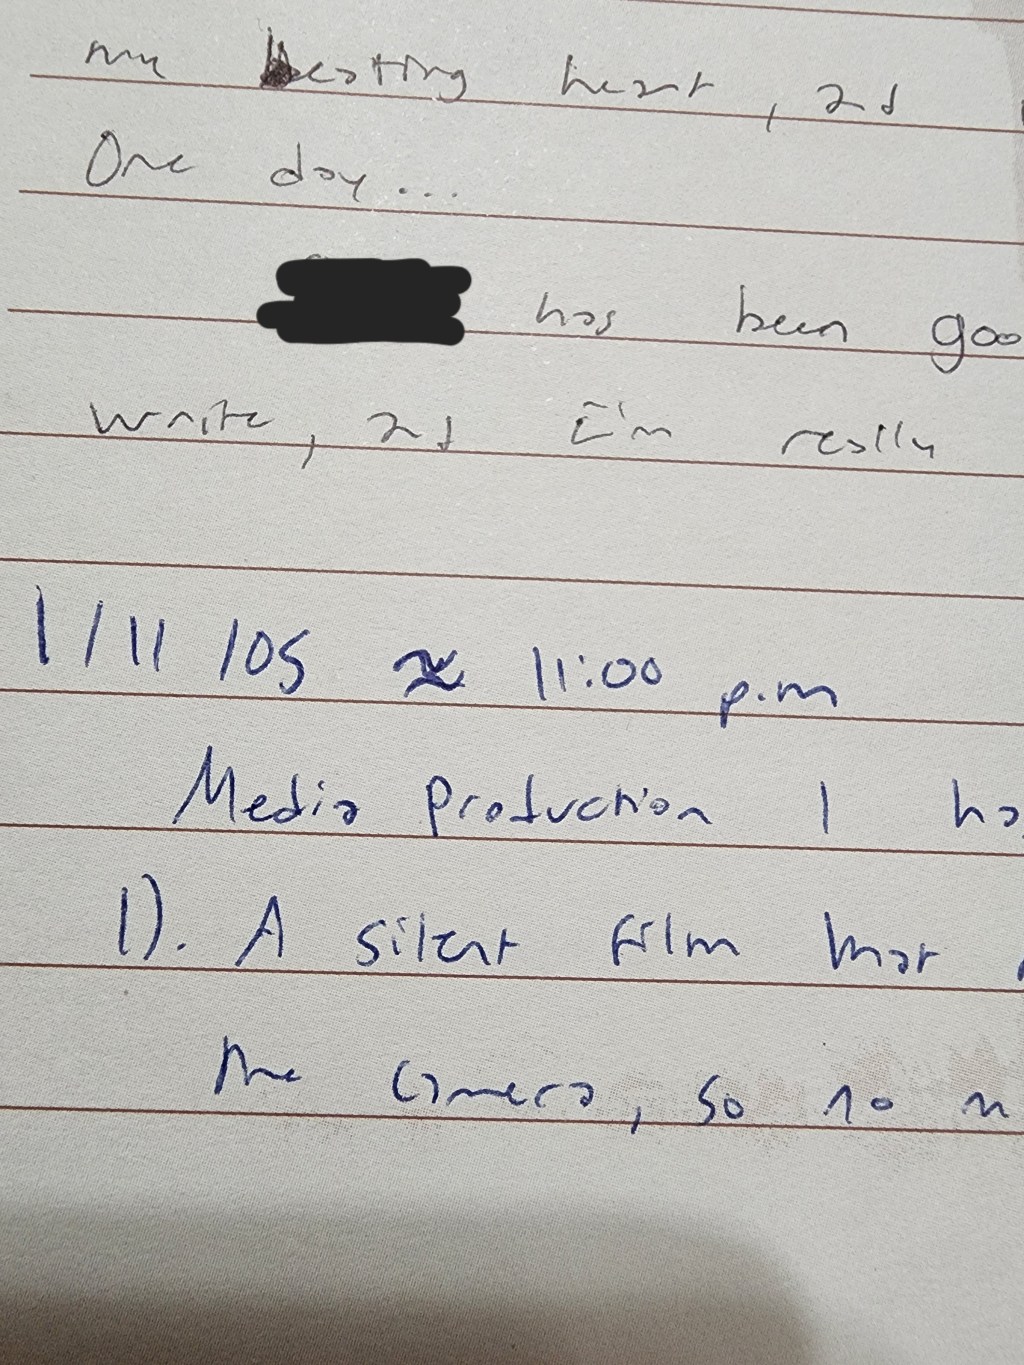 my beating heart, and
One day...
has been goo
write, and I'm really
1/11/05 ≈ 11:00 p.m
Media Production 1 ha
1). A silent film that
the camera, so no